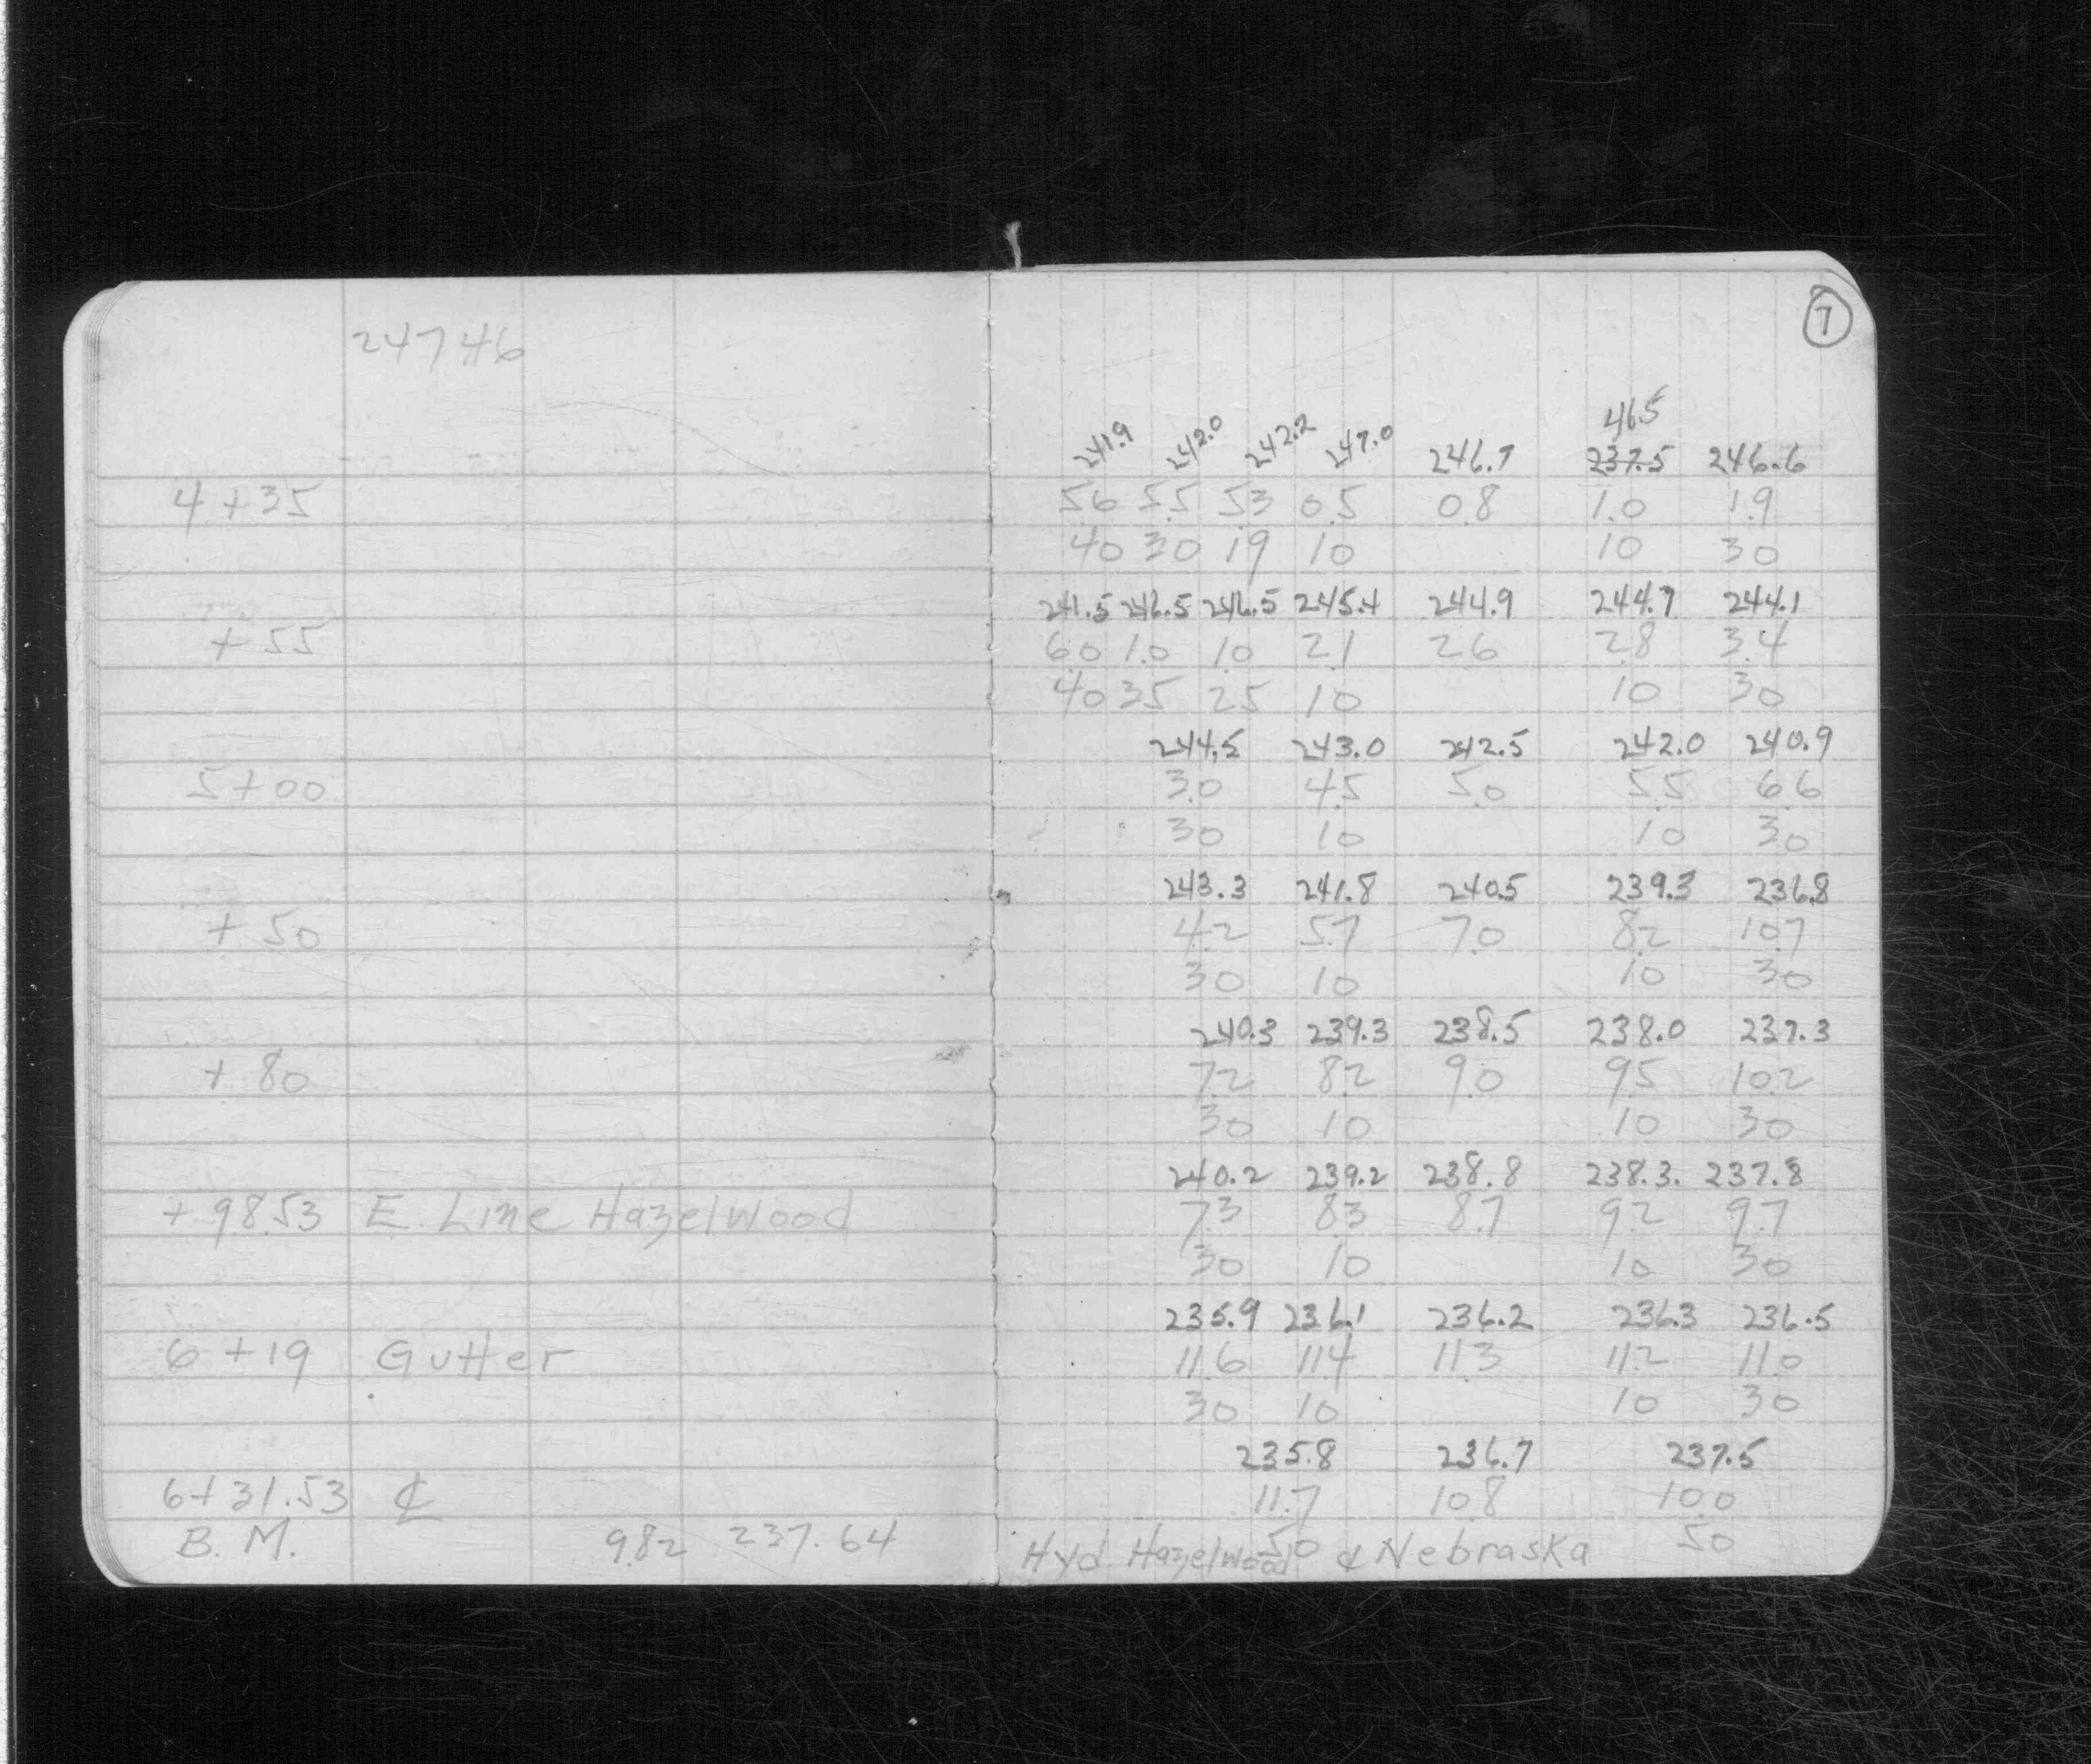 7
247.46
46.5
241.9 242.0 242.2 247.0 246.7 237.5 246.6
4+35 5.6 5.5 5.3 0.5 0.8 1.0 1.9
40 30 19 10 10 30
241.5 246.5 246.5 245.4 244.9 244.7 244.1
+55 6.0 1.0 1.0 2.1 2.6 2.8 3.4
40 35 25 10 10 30
244.5 243.0 242.5 242.0 240.9
5+00 3.0 4.5 5.0 5.5 6.6
30 10 10 30
243.3 241.8 240.5 239.3 236.8
+50 4.2 5.7 7.0 8.2 10.7
30 10 10 30
240.3 239.3 238.5 238.0 237.3
+80 7.2 8.2 9.0 9.5 10.2
30 10 10 30
240.2 239.2 238.8 238.3. 237.8
+98.53 E. Line Hazelwood 7.3 8.3 8.7 9.2 9.7
30 10 10 30
235.9 236.1 236.2 236.3 236.5
6+19 Gutter 11.6 11.4 11.3 11.2 11.0
30 10 10 30
235.8 236.7 237.5
6+31.53 ℄ 11.7 10.8 10.0
50 50
B. M. 9.82 237.64 Hyd. Hazelwood & Nebraska